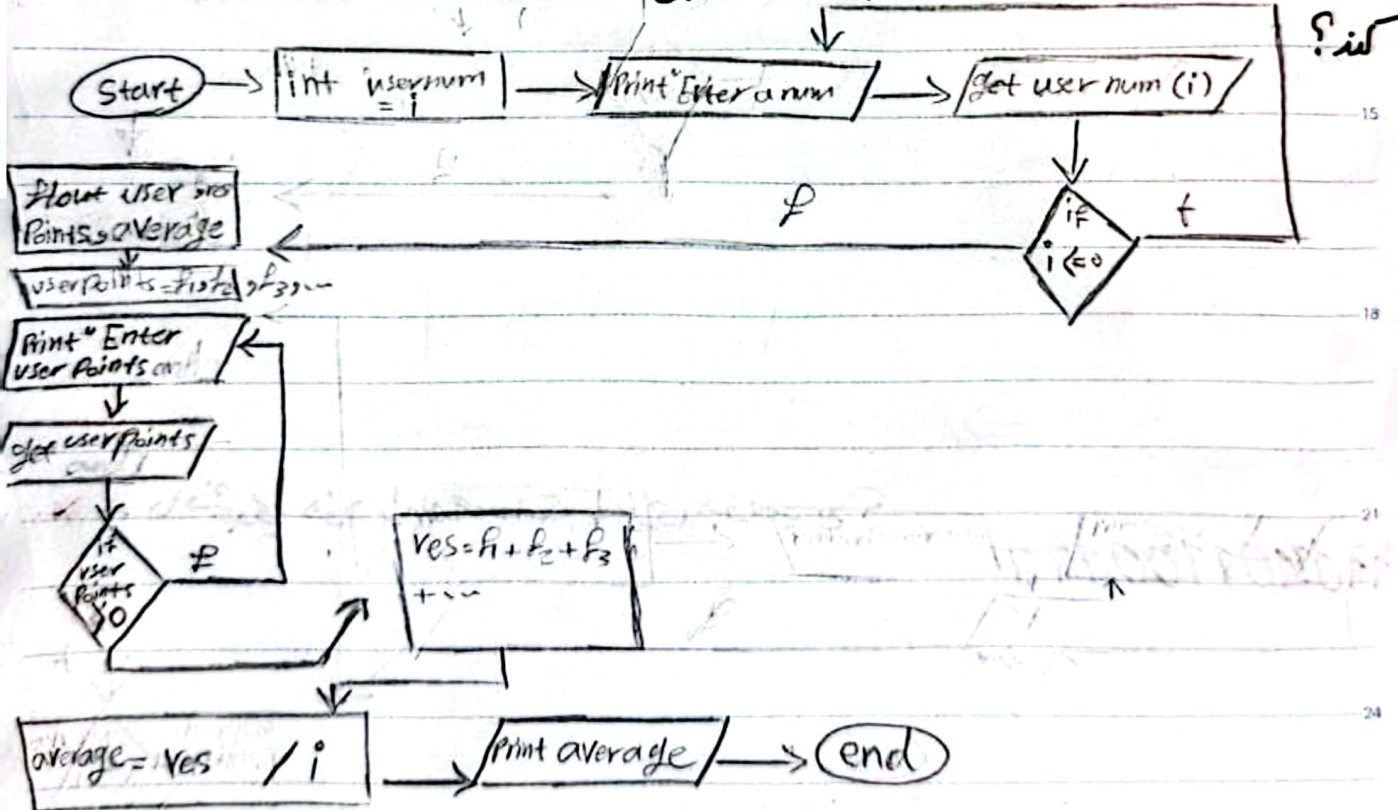 Start
int usernum
= i
Print "Enter a num
get user num (i)
if
i <= 0
t
f
float user
Points, average
userpoints = f1, f2, f3, ...
Print " Enter
user Points
get user points
if
user
points
>0
f
res = f1 + f2 + f3
+ ...
average = res / i
Print average
end
15
18
21
24